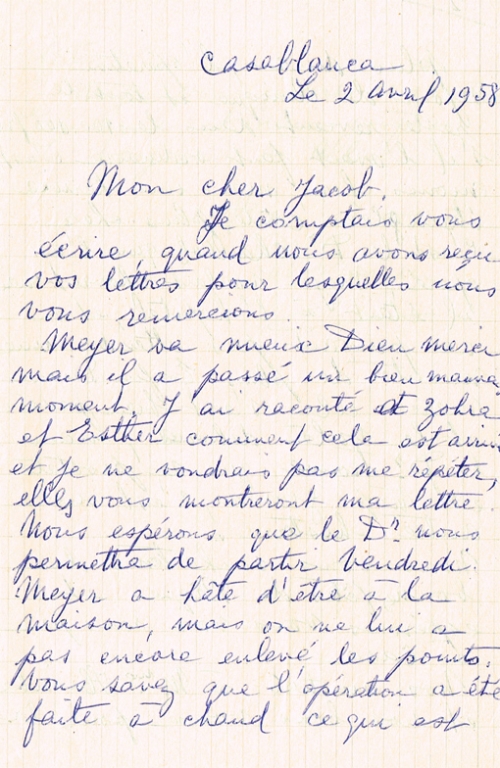 Casablanca
Le 2 Avril 1958
Mon cher Jacob,
Je comptais vous
écrire, quand nous avons reçu
vos lettres pour lesquelles nous
vous remercions.
Meyer va mieux Dieu merci
mais il a passé un bien mauva
moment. J'ai raconté à Zohra
et Esther comment cela est arriv
et je ne voudrais pas me répéter,
elles vous montreront ma lettre.
Nous espérons que le Dr. nous
permettra de partir Vendredi.
Meyer a hâte d'être à la
maison, mais on ne lui a
pas encore enlevé les points.
Vous savez que l'opération a été
faite à chaud ce qui est